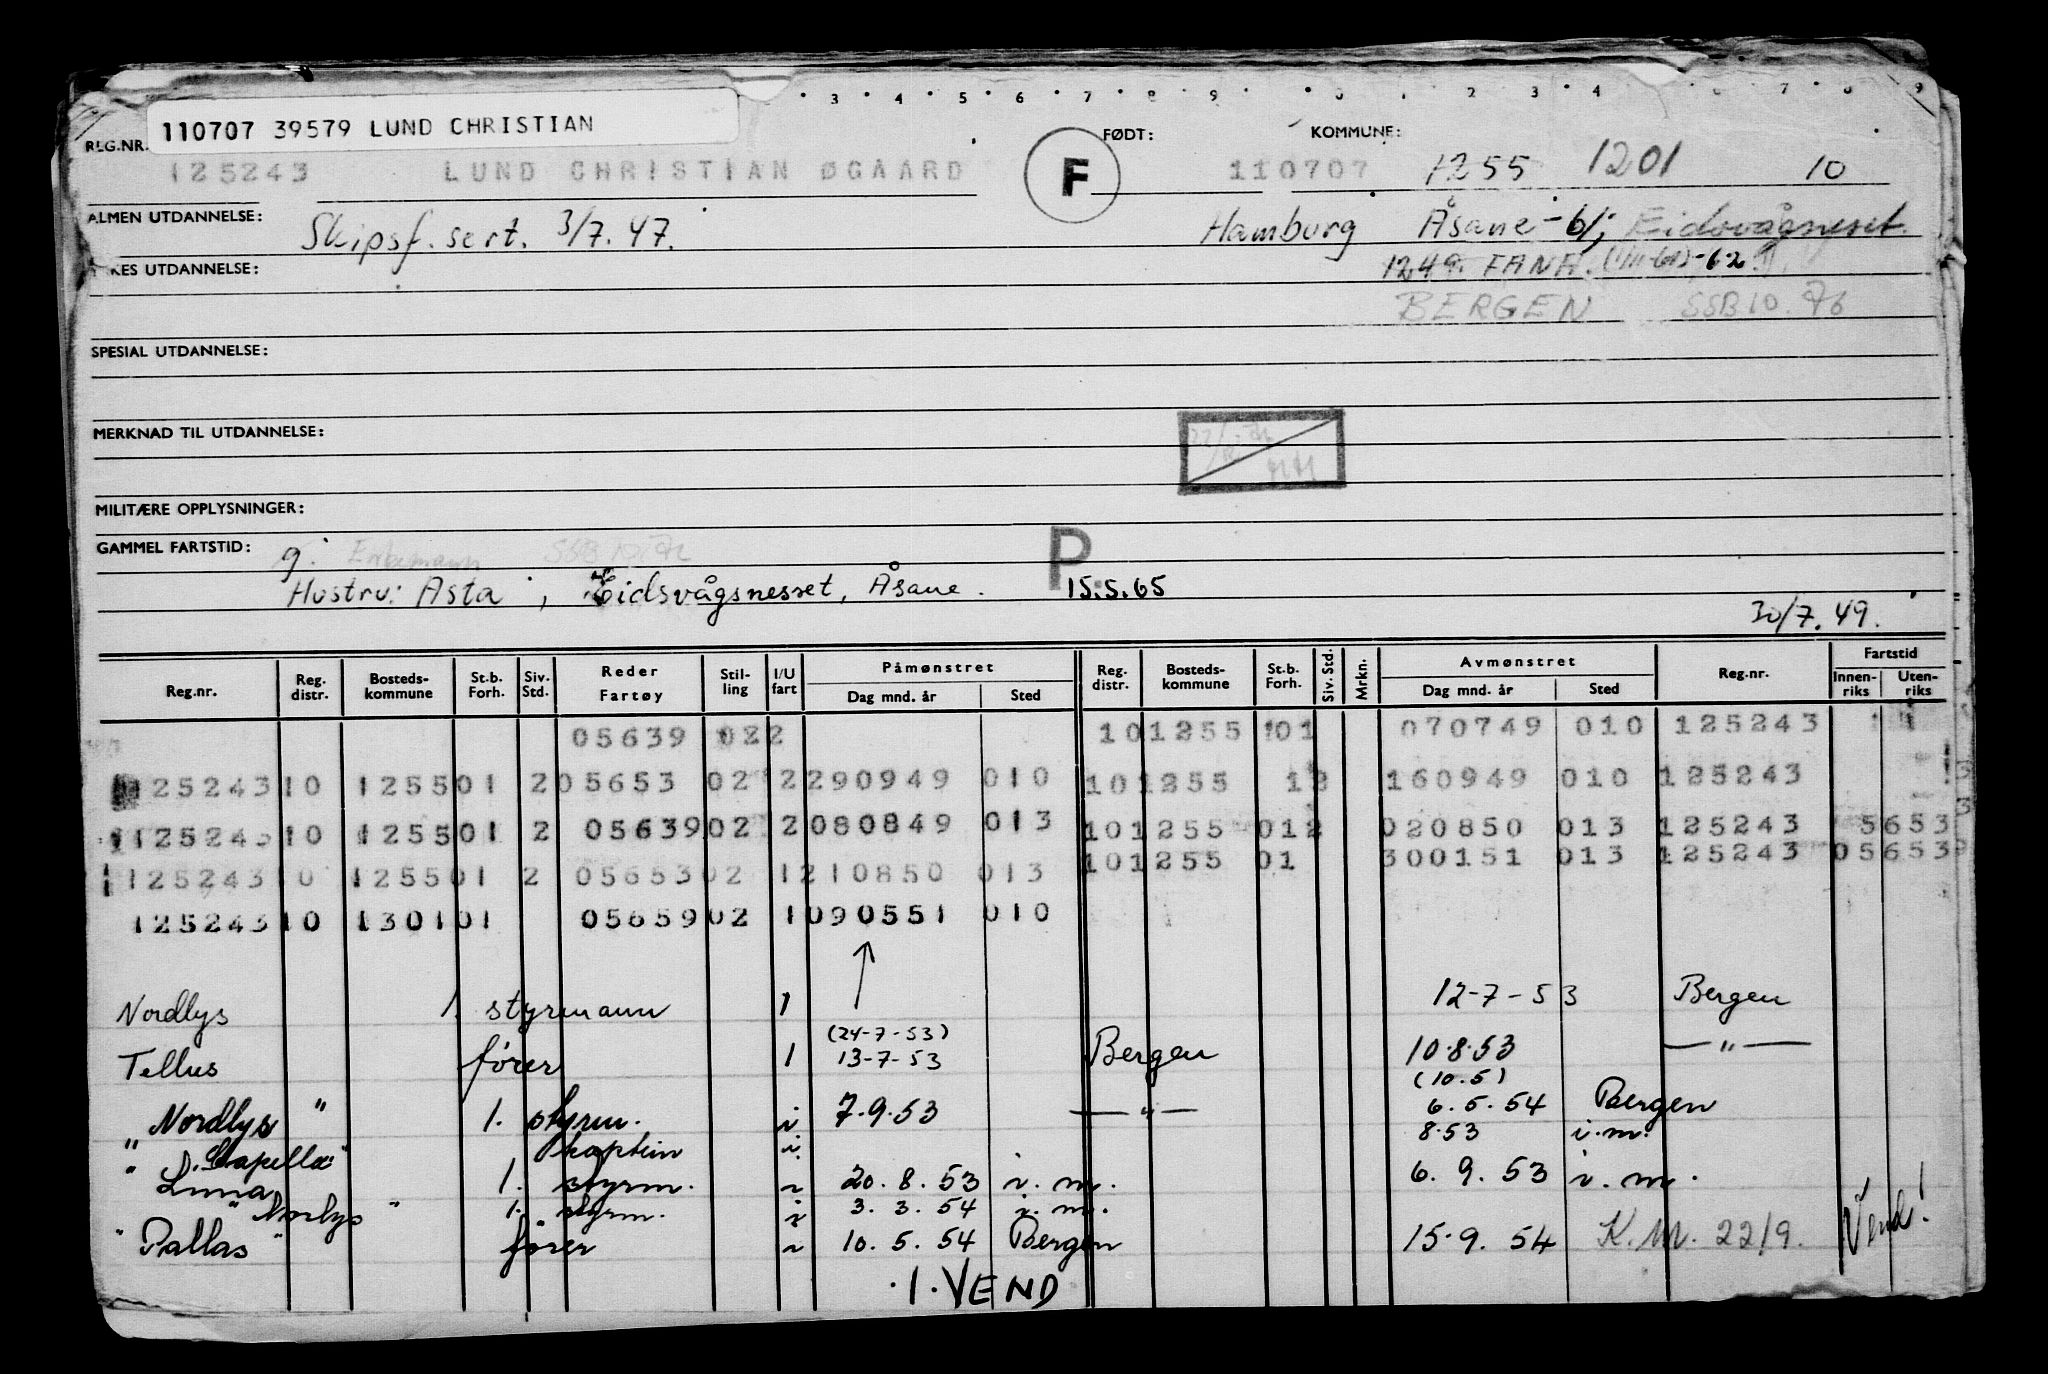 3 4 5 6 7 8 9 0 1 2 3 4 6 7 8 9
110707 39579 LUND CHRISTIAN
REG.NR. FØDT: KOMMUNE:
125243 LUND CHRISTIAN ØGAARD F 110707 1255 1201 10
ALMEN UTDANNELSE: Skipsf. sert. 3/7. 47. Hamburg Åsane - 61; Eidsvågneset.
YRKES UTDANNELSE: 1249. FANA. -62
BERGEN SSB 10. 76
SPESIAL UTDANNELSE:
MERKNAD TIL UTDANNELSE:
MILITÆRE OPPLYSNINGER:
GAMMEL FARTSTID: g. Enkemann P
Hustru: Asta ; Eidsvågsnesset, Åsane. 15.5.65
30/7. 49.
Reg.nr. Reg. distr. Bosteds- kommune St.b. Forh. Siv. Std. Reder Fartøy Stil- ling I/U fart Påmønstret Dag mnd. år Sted Reg. distr. Bosteds- kommune St.b. Forh. Siv. Std. Mrkn. Avmønstret Dag mnd. år Sted Reg.nr. Fartstid Innen- riks Uten- riks
05639 022 101255 01 070749 010 125243
25243 10 1255 01 2 05653 02 2 290949 010 101255 12 160949 010 125243
125243 10 1255 01 2 05639 02 2 080849 013 101255 012 020850 013 125243 5653
101255 01 300151 013 125243 05653
125243 10 1255 01 2 05653 02 1 210850 013
125243 10 1301 01 05659 02 1 090551 010
Nordlys 1. styrmann 1 12-7-53 Bergen
(24-7-53)
Tellus fører 1 13-7-53 Bergen 10.8.53 — " —
(10.5)
" Nordlys " 1. styrm. i 7.9.53 — " — 6.5.54 Bergen
" Capella " kaptein i 8.53 i.m.
Luna 1. styrm. i 20. 8. 53 i. m. 6. 9. 53 i. m.
" Norlys " 1. styrm. i 3. 3. 54 i. m.
" Pallas " fører i 10. 5. 54 Bergen 15.9. 54 K.M. 22/9. Vend!
. I. VEND